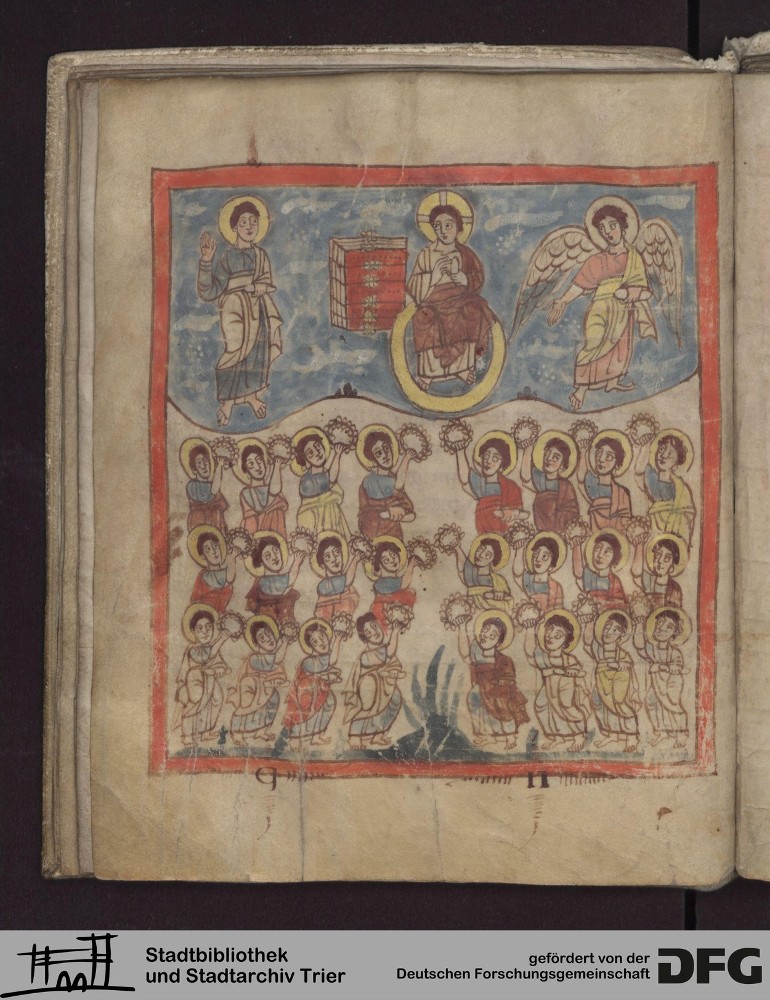 Stadtbibliothek
und Stadtarchiv Trier
gefördert von der
Deutschen Forschungsgemeinschaft
DFG